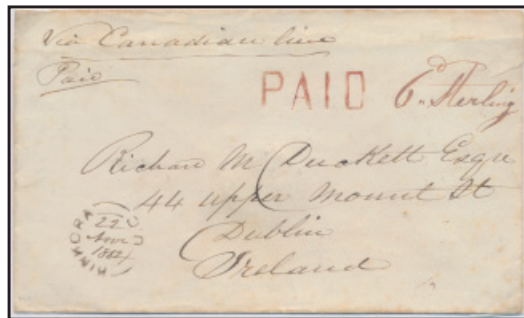 Via Canadian line
Paid
PAID 6d Sterling
Richard M Duckett Esqre
44 upper Mount St
Dublin
Ireland
U.C.
22
Nov